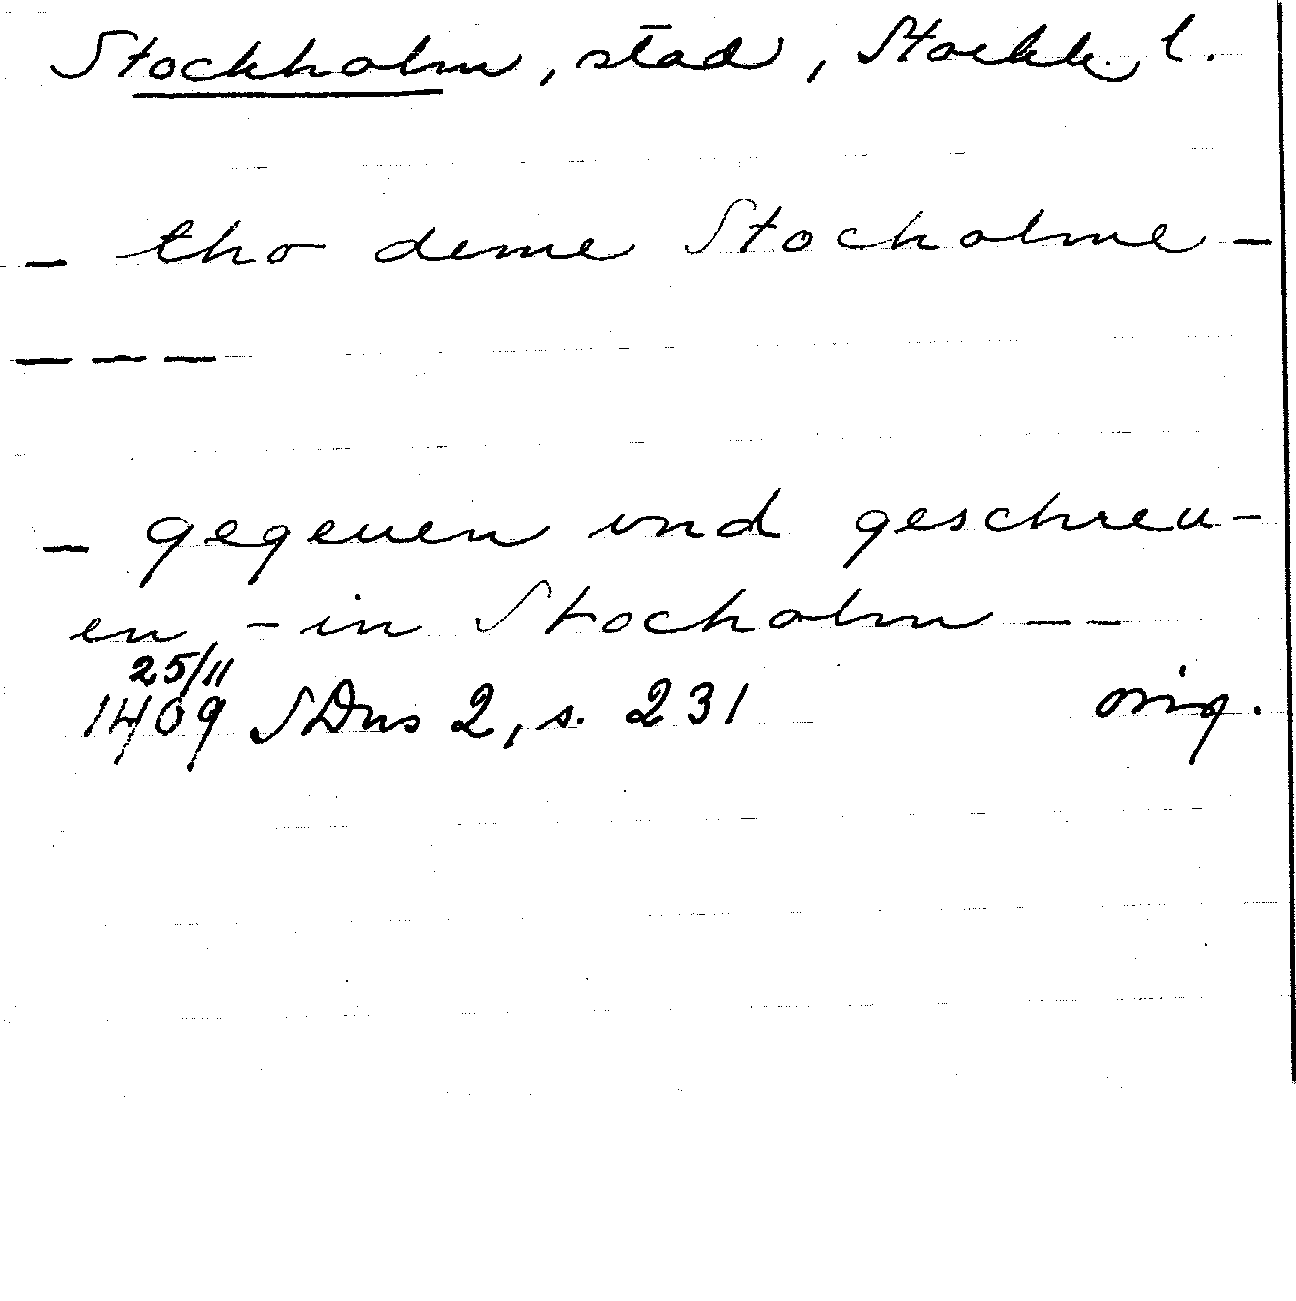 Stockholm, stad, Stockh. l.
- tho deme Stocholme -
- - -
- gegeuen vnd geschreu-
en - in Stocholm - -
25/11
1409 SDns 2, s. 231 orig.